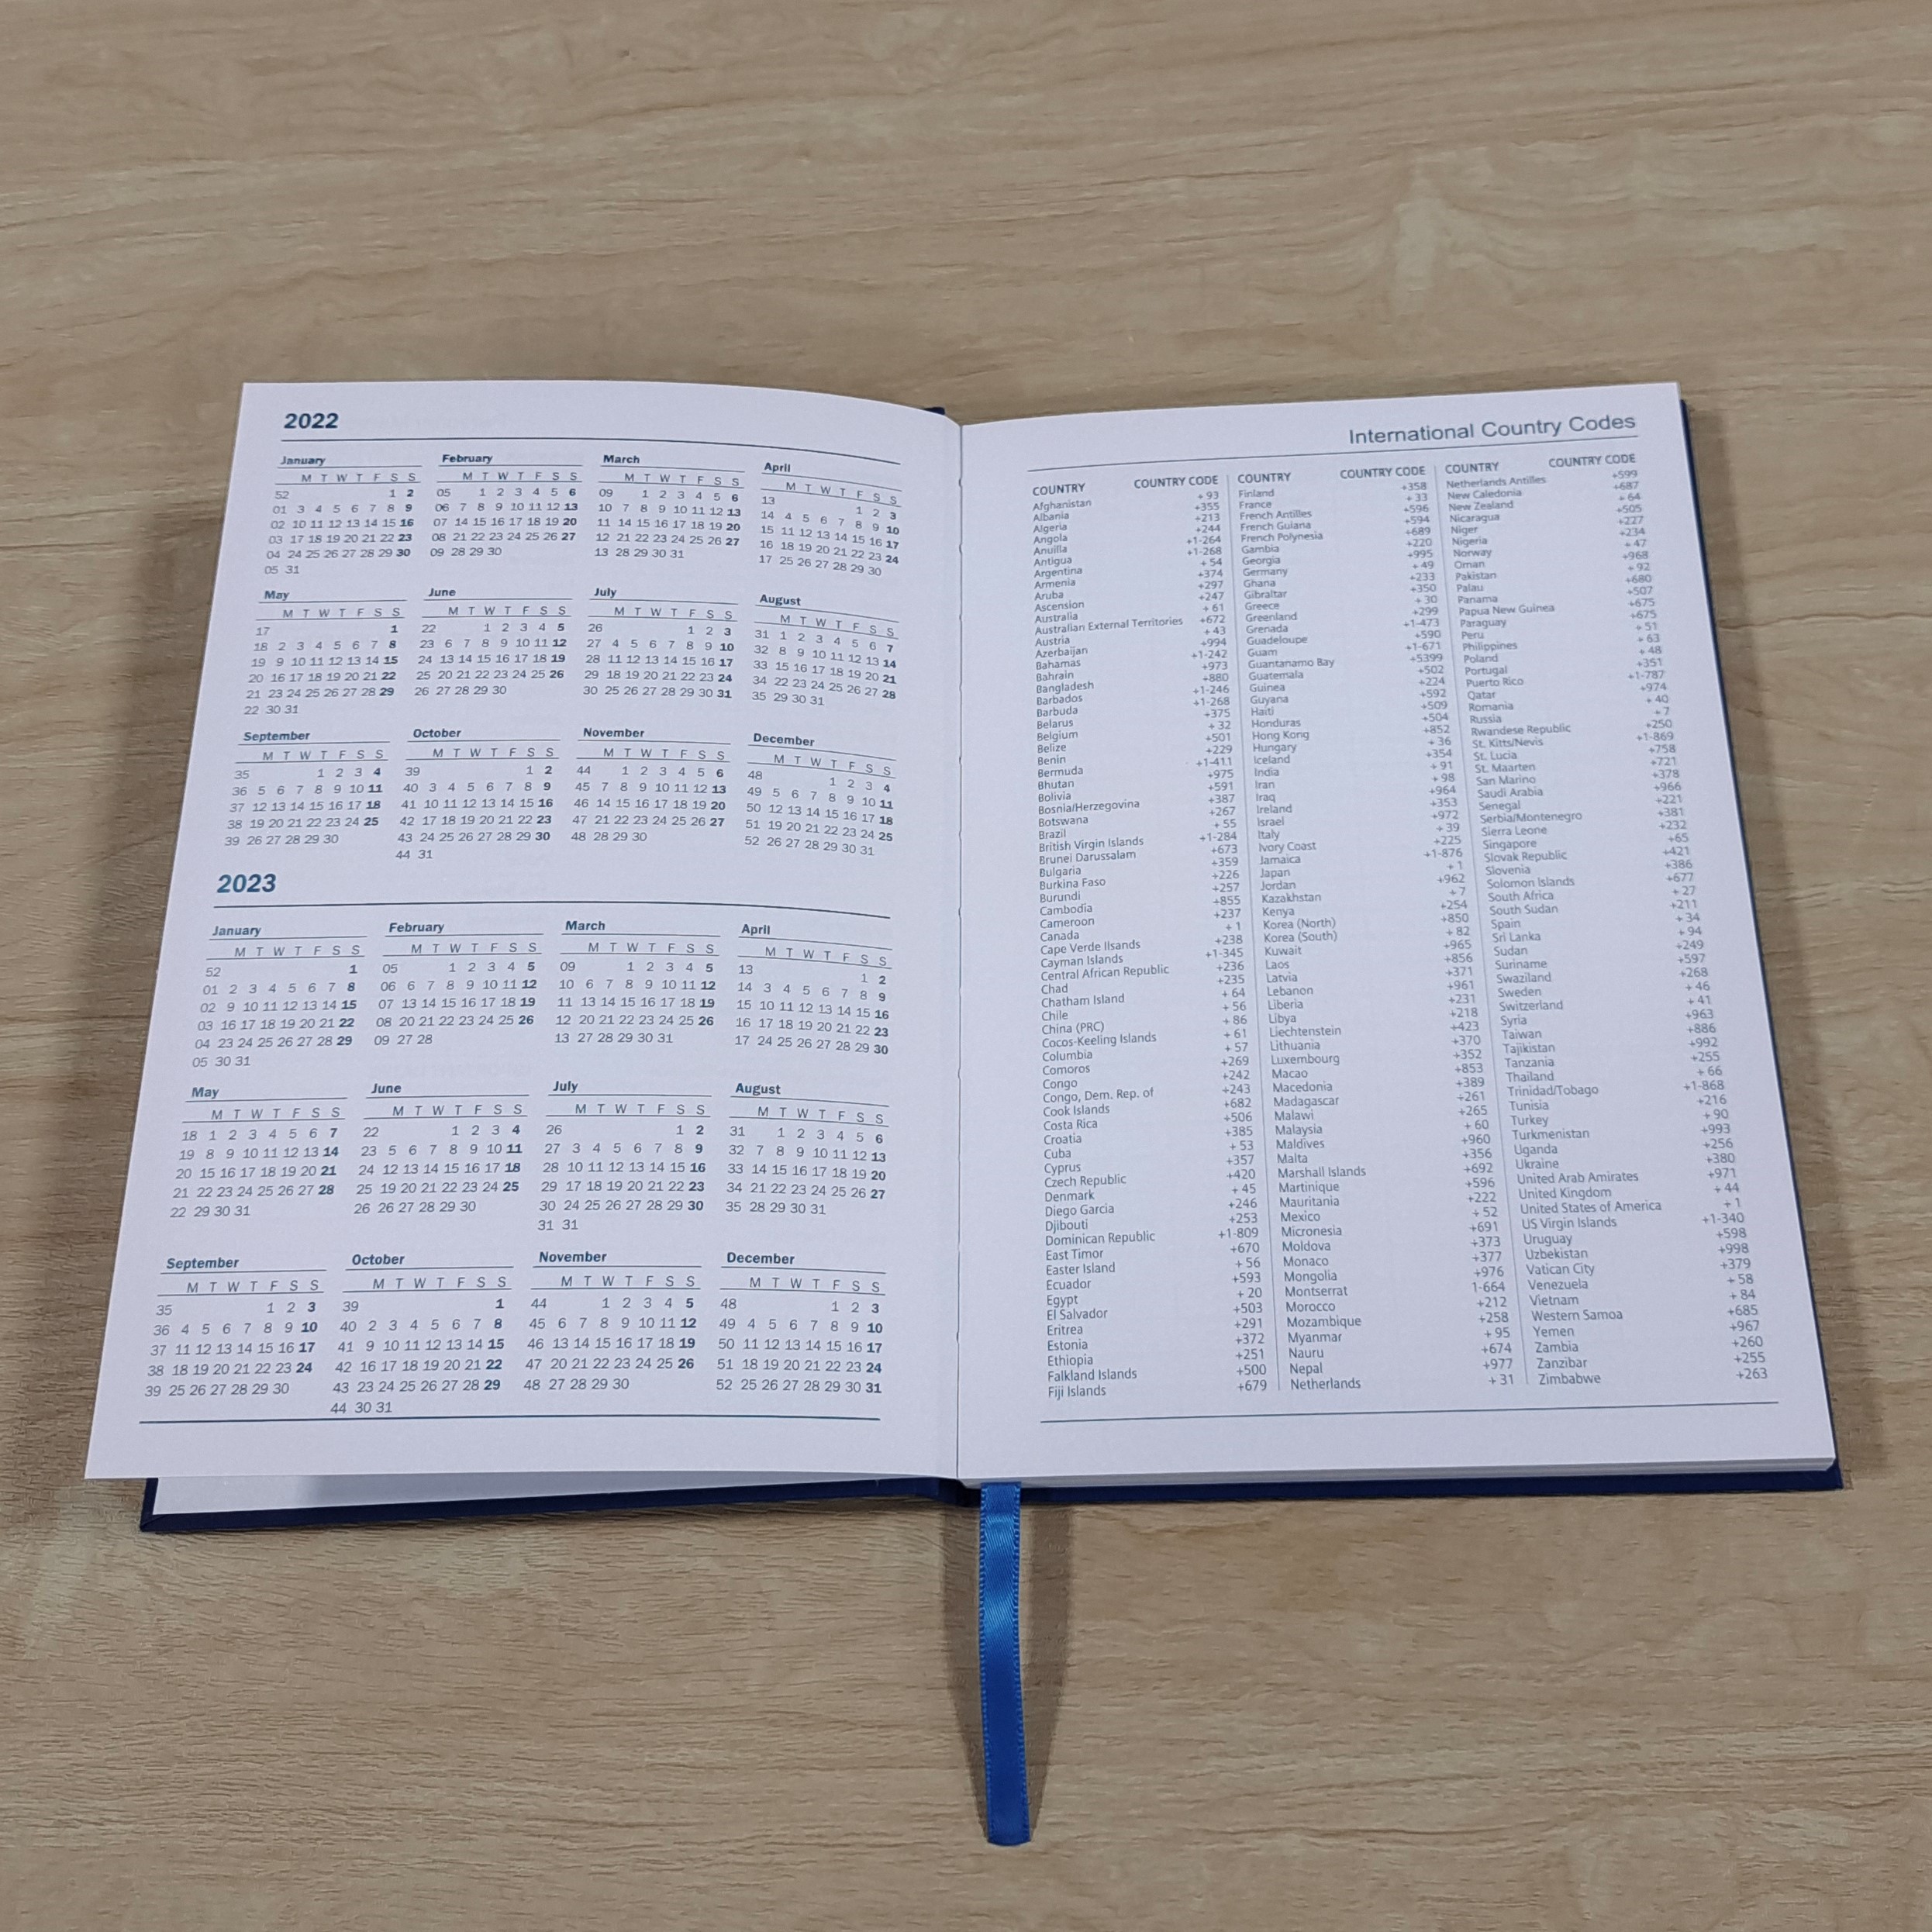 2022
January
M T W T F S S
52 1 2
01 3 4 5 6 7 8 9
02 10 11 12 13 14 15 16
03 17 18 19 20 21 22 23
04 24 25 26 27 28 29 30
05 31
February
M T W T F S S
05 1 2 3 4 5 6
06 7 8 9 10 11 12 13
07 14 15 16 17 18 19 20
08 21 22 23 24 25 26 27
09 28 29 30
March
M T W T F S S
09 1 2 3 4 5 6
10 7 8 9 10 11 12 13
11 14 15 16 17 18 19 20
12 21 22 23 24 25 26 27
13 28 29 30 31
April
M T W T F S S
13 1 2 3
14 4 5 6 7 8 9 10
15 11 12 13 14 15 16 17
16 18 19 20 21 22 23 24
17 25 26 27 28 29 30
May
M T W T F S S
17 1
18 2 3 4 5 6 7 8
19 9 10 11 12 13 14 15
20 16 17 18 19 20 21 22
21 23 24 25 26 27 28 29
22 30 31
June
M T W T F S S
22 1 2 3 4 5
23 6 7 8 9 10 11 12
24 13 14 15 16 17 18 19
25 20 21 22 23 24 25 26
26 27 28 29 30
July
M T W T F S S
26 1 2 3
27 4 5 6 7 8 9 10
28 11 12 13 14 15 16 17
29 18 19 20 21 22 23 24
30 25 26 27 28 29 30 31
August
M T W T F S S
31 1 2 3 4 5 6 7
32 8 9 10 11 12 13 14
33 15 16 17 18 19 20 21
34 22 23 24 25 26 27 28
35 29 30 31
September
M T W T F S S
35 1 2 3 4
36 5 6 7 8 9 10 11
37 12 13 14 15 16 17 18
38 19 20 21 22 23 24 25
39 26 27 28 29 30
October
M T W T F S S
39 1 2
40 3 4 5 6 7 8 9
41 10 11 12 13 14 15 16
42 17 18 19 20 21 22 23
43 24 25 26 27 28 29 30
44 31
November
M T W T F S S
44 1 2 3 4 5 6
45 7 8 9 10 11 12 13
46 14 15 16 17 18 19 20
47 21 22 23 24 25 26 27
48 28 29 30
December
M T W T F S S
48 1 2 3 4
49 5 6 7 8 9 10 11
50 12 13 14 15 16 17 18
51 19 20 21 22 23 24 25
52 26 27 28 29 30 31
2023
January
M T W T F S S
52 1
01 2 3 4 5 6 7 8
02 9 10 11 12 13 14 15
03 16 17 18 19 20 21 22
04 23 24 25 26 27 28 29
05 30 31
February
M T W T F S S
05 1 2 3 4 5
06 6 7 8 9 10 11 12
07 13 14 15 16 17 18 19
08 20 21 22 23 24 25 26
09 27 28
March
M T W T F S S
09 1 2 3 4 5
10 6 7 8 9 10 11 12
11 13 14 15 16 17 18 19
12 20 21 22 23 24 25 26
13 27 28 29 30 31
April
M T W T F S S
13 1 2
14 3 4 5 6 7 8 9
15 10 11 12 13 14 15 16
16 17 18 19 20 21 22 23
17 24 25 26 27 28 29 30
May
M T W T F S S
18 1 2 3 4 5 6 7
19 8 9 10 11 12 13 14
20 15 16 17 18 19 20 21
21 22 23 24 25 26 27 28
22 29 30 31
June
M T W T F S S
22 1 2 3 4
23 5 6 7 8 9 10 11
24 12 13 14 15 16 17 18
25 19 20 21 22 23 24 25
26 26 27 28 29 30
July
M T W T F S S
26 1 2
27 3 4 5 6 7 8 9
28 10 11 12 13 14 15 16
29 17 18 19 20 21 22 23
30 24 25 26 27 28 29 30
31 31
August
M T W T F S S
31 1 2 3 4 5 6
32 7 8 9 10 11 12 13
33 14 15 16 17 18 19 20
34 21 22 23 24 25 26 27
35 28 29 30 31
September
M T W T F S S
35 1 2 3
36 4 5 6 7 8 9 10
37 11 12 13 14 15 16 17
38 18 19 20 21 22 23 24
39 25 26 27 28 29 30
October
M T W T F S S
39 1
40 2 3 4 5 6 7 8
41 9 10 11 12 13 14 15
42 16 17 18 19 20 21 22
43 23 24 25 26 27 28 29
44 30 31
November
M T W T F S S
44 1 2 3 4 5
45 6 7 8 9 10 11 12
46 13 14 15 16 17 18 19
47 20 21 22 23 24 25 26
48 27 28 29 30
December
M T W T F S S
48 1 2 3
49 4 5 6 7 8 9 10
50 11 12 13 14 15 16 17
51 18 19 20 21 22 23 24
52 25 26 27 28 29 30 31
International Country Codes
COUNTRY COUNTRY CODE
Afghanistan + 93
Albania +355
Algeria +213
Angola +244
Anuilla +1-264
Antigua +1-268
Argentina + 54
Armenia +374
Aruba +297
Ascension +247
Australia + 61
Australian External Territories +672
Austria + 43
Azerbaijan +994
Bahamas +1-242
Bahrain +973
Bangladesh +880
Barbados +1-246
Barbuda +1-268
Belarus +375
Belgium + 32
Belize +501
Benin +229
Bermuda +1-411
Bhutan +975
Bolivia +591
Bosnia/Herzegovina +387
Botswana +267
Brazil + 55
British Virgin Islands +1-284
Brunei Darussalam +673
Bulgaria +359
Burkina Faso +226
Burundi +257
Cambodia +855
Cameroon +237
Canada + 1
Cape Verde Ilsands +238
Cayman Islands +1-345
Central African Republic +236
Chad +235
Chatham Island + 64
Chile + 56
China (PRC) + 86
Cocos-Keeling Islands + 61
Columbia + 57
Comoros +269
Congo +242
Congo, Dem. Rep. of +243
Cook Islands +682
Costa Rica +506
Croatia +385
Cuba + 53
Cyprus +357
Czech Republic +420
Denmark + 45
Diego Garcia +246
Djibouti +253
Dominican Republic +1-809
East Timor +670
Easter Island + 56
Ecuador +593
Egypt + 20
El Salvador +503
Eritrea +291
Estonia +372
Ethiopia +251
Falkland Islands +500
Fiji Islands +679
COUNTRY COUNTRY CODE
Finland +358
France + 33
French Antilles +596
French Guiana +594
French Polynesia +689
Gambia +220
Georgia +995
Germany + 49
Ghana +233
Gibraltar +350
Greece + 30
Greenland +299
Grenada +1-473
Guadeloupe +590
Guam +1-671
Guantanamo Bay +5399
Guatemala +502
Guinea +224
Guyana +592
Haiti +509
Honduras +504
Hong Kong +852
Hungary + 36
Iceland +354
India + 91
Iran + 98
Iraq +964
Ireland +353
Israel +972
Italy + 39
Ivory Coast +225
Jamaica +1-876
Japan + 1
Jordan +962
Kazakhstan + 7
Kenya +254
Korea (North) +850
Korea (South) + 82
Kuwait +965
Laos +856
Latvia +371
Lebanon +961
Liberia +231
Libya +218
Liechtenstein +423
Lithuania +370
Luxembourg +352
Macao +853
Macedonia +389
Madagascar +261
Malawi +265
Malaysia + 60
Maldives +960
Malta +356
Marshall Islands +692
Martinique +596
Mauritania +222
Mexico + 52
Micronesia +691
Moldova +373
Monaco +377
Mongolia +976
Montserrat 1-664
Morocco +212
Mozambique +258
Myanmar + 95
Nauru +674
Nepal +977
Netherlands + 31
COUNTRY COUNTRY CODE
Netherlands Antilles +599
New Caledonia +687
New Zealand + 64
Nicaragua +505
Niger +227
Nigeria +234
Norway + 47
Oman +968
Pakistan + 92
Palau +680
Panama +507
Papua New Guinea +675
Paraguay +675
Peru + 51
Philippines + 63
Poland + 48
Portugal +351
Puerto Rico +1-787
Qatar +974
Romania + 40
Russia + 7
Rwandese Republic +250
St. Kitts/Nevis +1-869
St. Lucia +758
St. Maarten +721
San Marino +378
Saudi Arabia +966
Senegal +221
Serbia/Montenegro +381
Sierra Leone +232
Singapore +65
Slovak Republic +421
Slovenia +386
Solomon Islands +677
South Africa + 27
South Sudan +211
Spain + 34
Sri Lanka + 94
Sudan +249
Suriname +597
Swaziland +268
Sweden + 46
Switzerland + 41
Syria +963
Taiwan +886
Tajikistan +992
Tanzania +255
Thailand + 66
Trinidad/Tobago +1-868
Tunisia +216
Turkey + 90
Turkmenistan +993
Uganda +256
Ukraine +380
United Arab Amirates +971
United Kingdom + 44
United States of America + 1
US Virgin Islands +1-340
Uruguay +598
Uzbekistan +998
Vatican City +379
Venezuela + 58
Vietnam + 84
Western Samoa +685
Yemen +967
Zambia +260
Zanzibar +255
Zimbabwe +263